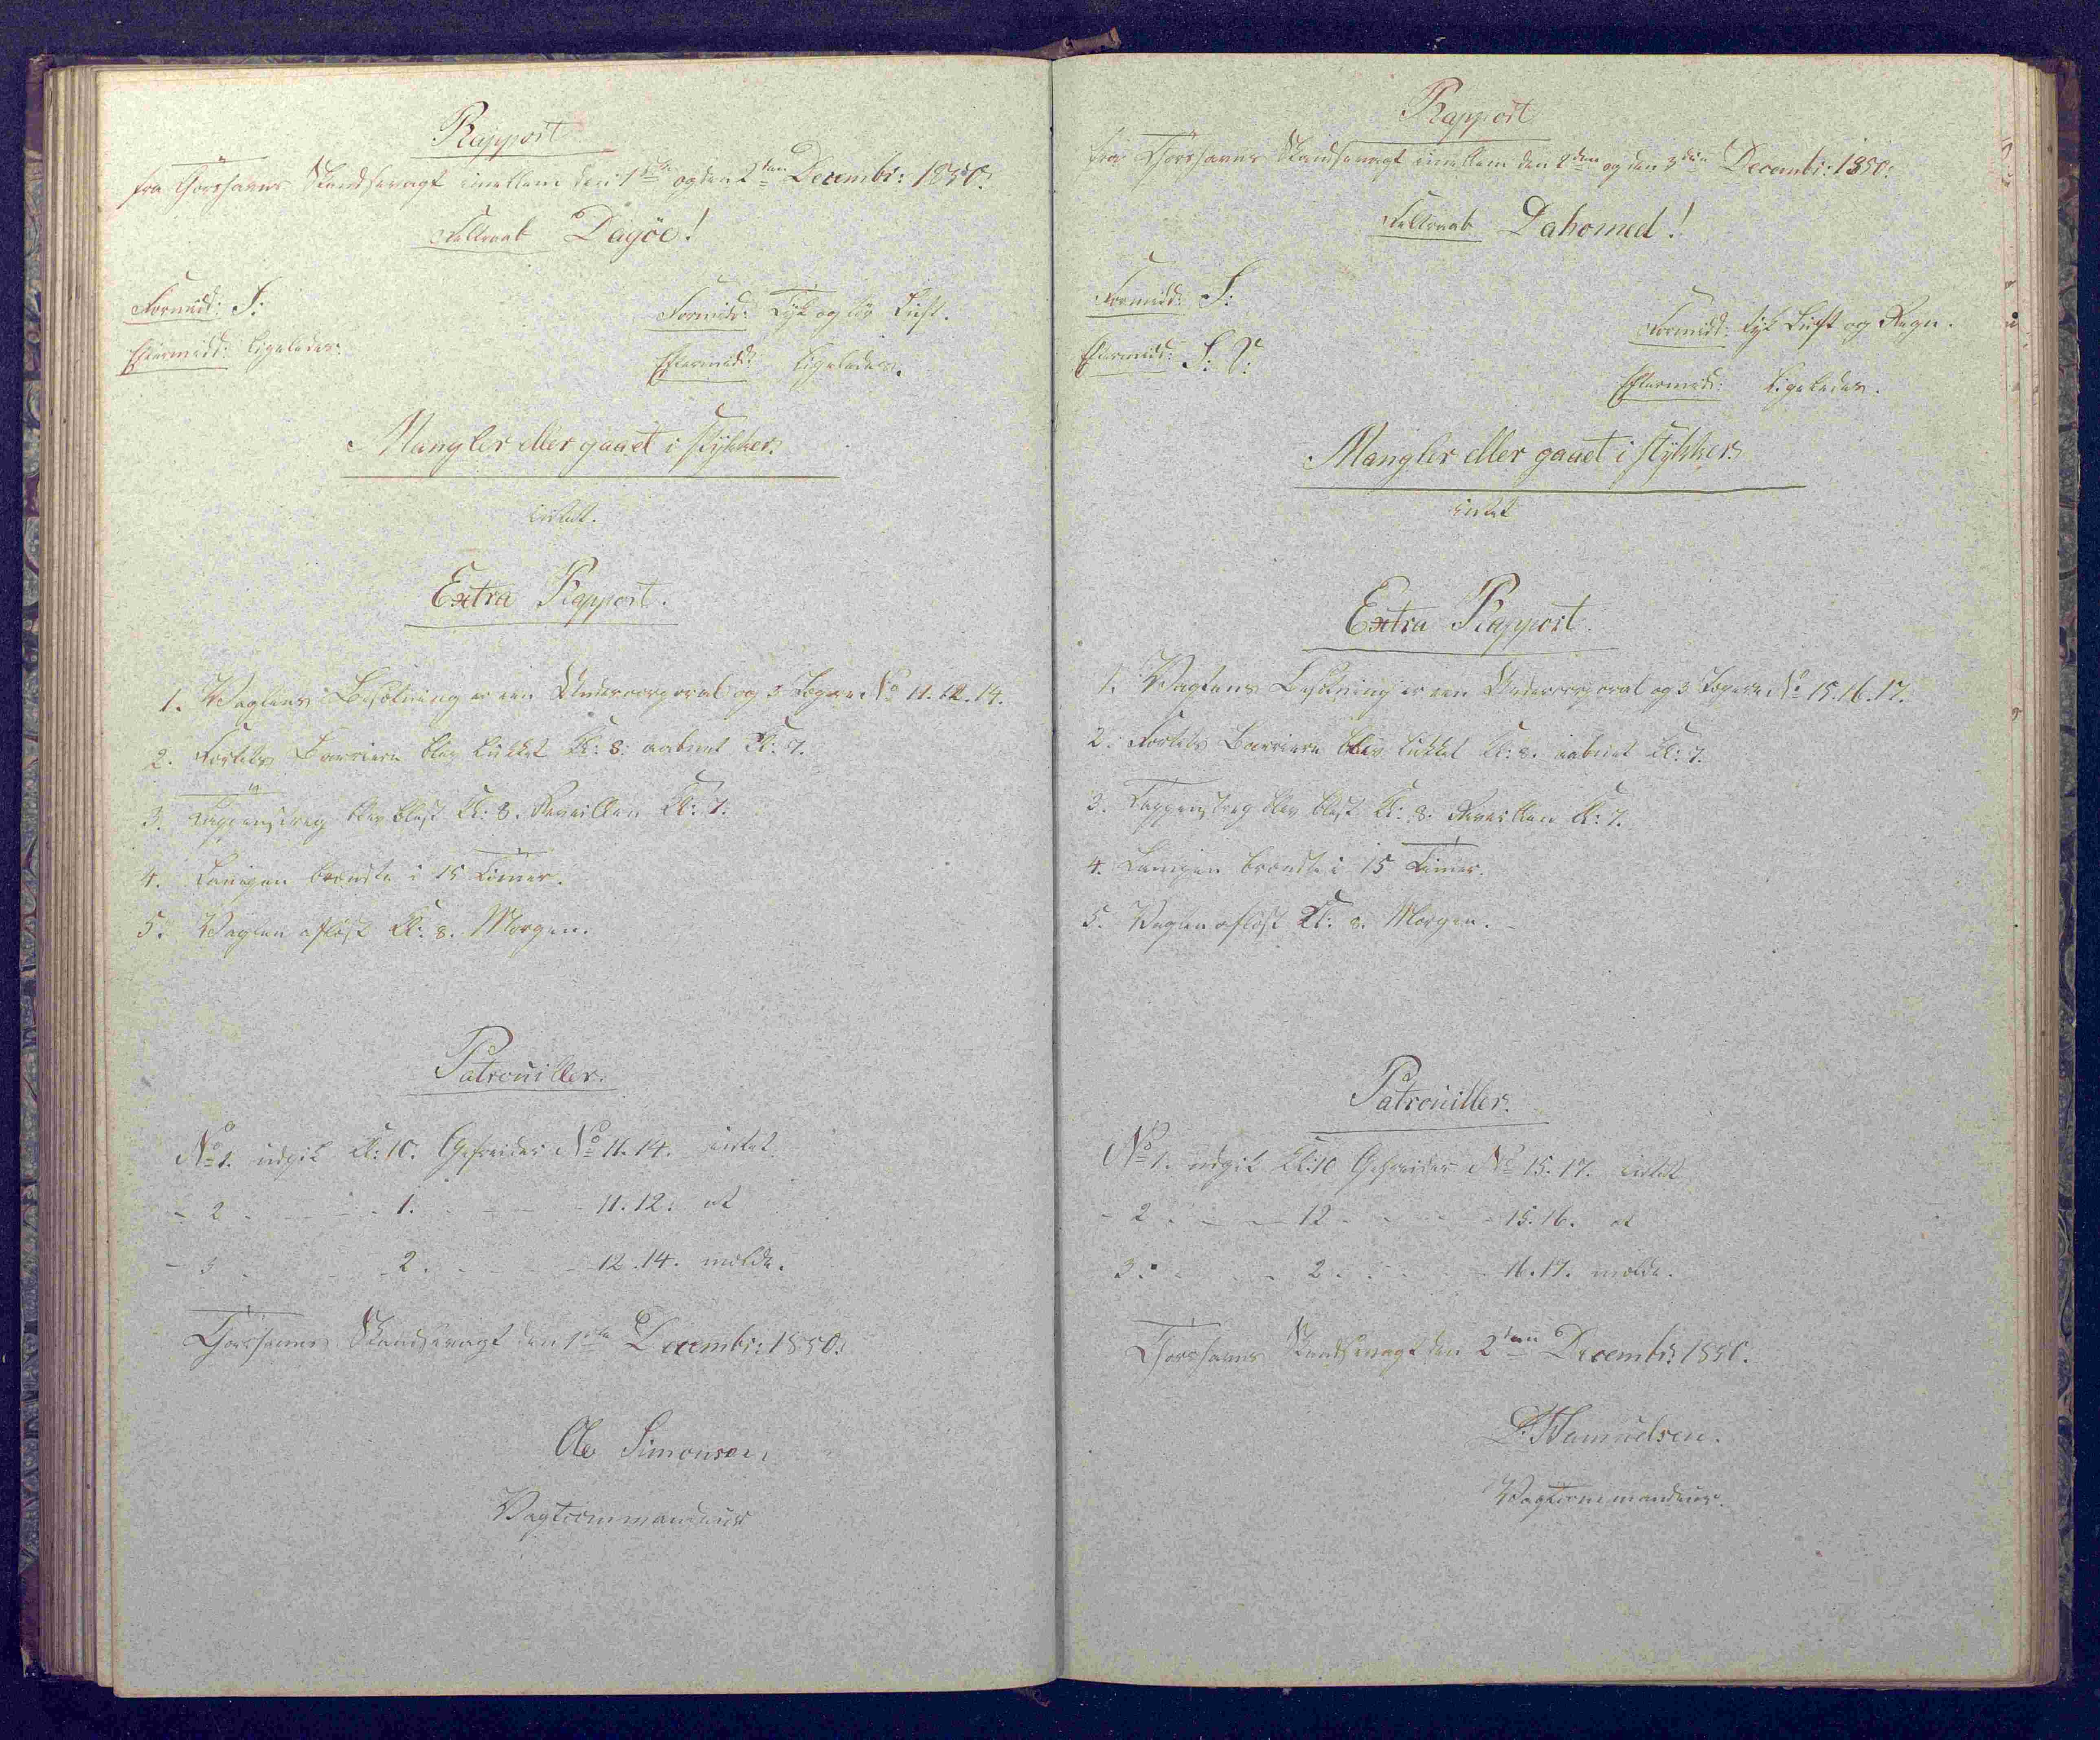 Rapport
fra Thorshavns Skandsevagt imellem den 1ste og den 2den Decembr: 1850.
Feltraab Dagöe!
Formidd: S:
Eftermidd: Ligeledes.
Formidd: Tyk og tør Luft.
Eftermidd: Ligeledes.
Mangler eller gaaet i stykker.
intet.
Extra Rapport.
1. Vagtens Besætning er een Undercorporal og 3 Jægere No 11. 12. 14.
2. Fortets Barriere blev lukket Kl: 8. aabnet Kl: 7.
3. Tappenstreg blev blæst Kl: 8. Reveillen Kl: 7.
4. Lampen brændte i 15 Timer.
5. Vagten afløst Kl: 8. Morgen.
Patrouiller.
No 1. udgik Kl: 10. Gefreider No 11. 14. intet
- 2 - - - 1. - - - 11. 12. at
- 3 - - - 2. - - - 12. 14. melde.
Thorshavns Skandsevagt den 1ste Decembr: 1850.
Ole Simonsen
Vagtcommandeur
Rapport
fra Thorshavns Skandsevagt imellem den 2den og den 3die Decembr: 1850.
Feltraab Dahomed!
Formidd: S:
Eftermidd: S: V:
Formidd: Tyk Luft og Regn.
Eftermidd: Ligeledes.
Mangler eller gaaet i stykker.
intet
Extra Rapport.
1. Vagtens Besætning er een Undercorporal og 3 Jægere No 15. 16. 17.
2. Fortets Barriere blev lukket Kl: 8. aabnet Kl: 7.
3. Tappenstreg blev blæst Kl: 8. Reveillen Kl: 7.
4. Lampen brændte i 15 Timer.
5. Vagten afløst Kl: 8. Morgen.
Patrouiller.
No 1. udgik Kl: 10 Gefreider No 15. 17. intet
- 2 - - - 12 - - - 15. 16. at
3. - - - 2. - - - 16. 17. melde.
Thorshavns Skandsevagt den 2den Decembr: 1850.
Samuelsen.
Vagtcommandeur.